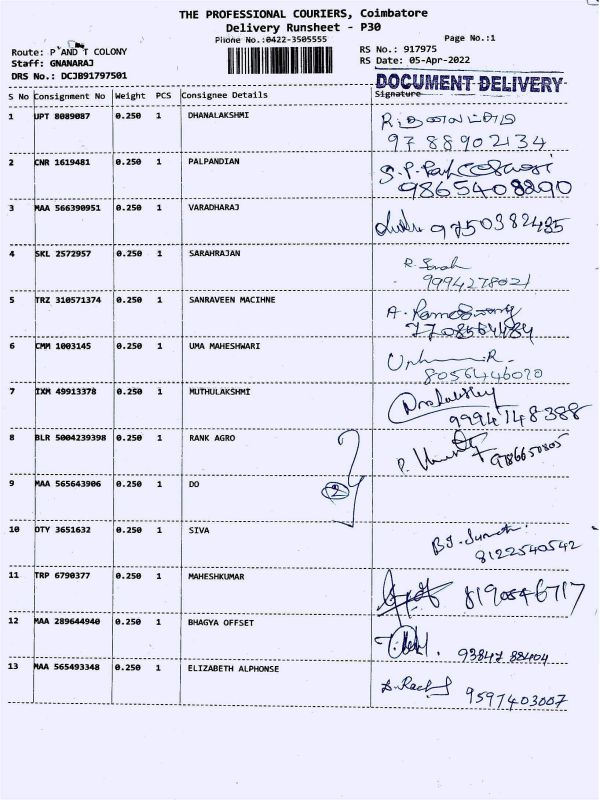 THE PROFESSIONAL COURIERS, Coimbatore
Delivery Runsheet - P30
Phone No.:0422-3505555 Page No.:1
Route: P AND T COLONY RS No.: 917975
Staff: GNANARAJ RS Date: 05-Apr-2022
DRS No.: DCJB91797501
DOCUMENT DELIVERY
S No Consignment No Weight PCS Consignee Details Signature
1 UPT 8089087 0.250 1 DHANALAKSHMI
9788902134
2 CNR 1619481 0.250 1 PALPANDIAN
9865408890
3 MAA 566390951 0.250 1 VARADHARAJ 9750382435
4 SKL 2572957 0.250 1 SARAHRAJAN
9994278021
5 TRZ 310571374 0.250 1 SANRAVEEN MACIHNE
6 CMM 1003145 0.250 1 UMA MAHESHWARI
8056446020
7 IXM 49913378 0.250 1 MUTHULAKSHMI
9994148388
8 BLR 5004239398 0.250 1 RANK AGRO 9786650805
9 MAA 565643906 0.250 1 DO 2
10 OTY 3651632 0.250 1 SIVA
8122540542
11 TRP 6790377 0.250 1 MAHESHKUMAR 8190546717
12 MAA 289644940 0.250 1 BHAGYA OFFSET
9384788404
13 MAA 565493348 0.250 1 ELIZABETH ALPHONSE
9597403007